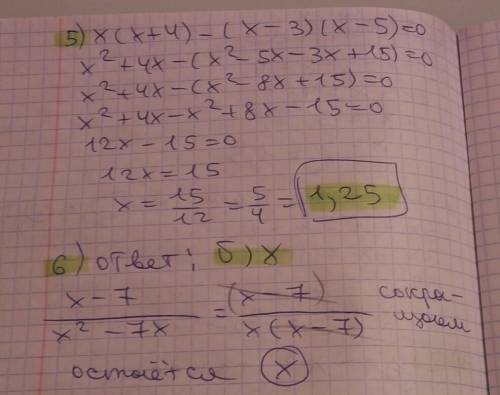 5) x(x+4) - (x-3)(x-5)=0
x²+4x-(x²-5x-3x+15)=0
x²+4x-(x²-8x+15)=0
x²+4x-x²+8x-15=0
12x-15=0
12x=15
x = 15/12 = 5/4 = 1,25
6) ответ: б) x
(x-7)/(x²-7x) = (x-7)/(x(x-7)) сокра-
щаем
остаётся x